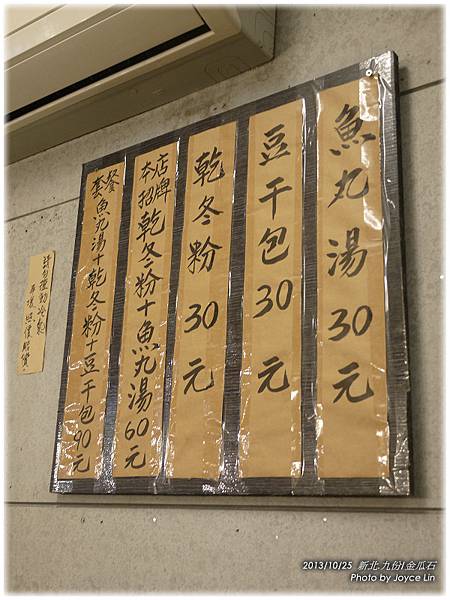 魚丸湯30元
豆干包30元
乾冬粉30元
本店招牌 乾冬粉+魚丸湯60元
套餐 魚丸湯+乾冬粉+豆干包90元
請勿
照價賠償
2013/10/25 新北.九份/金瓜石
Photo by Joyce Lin